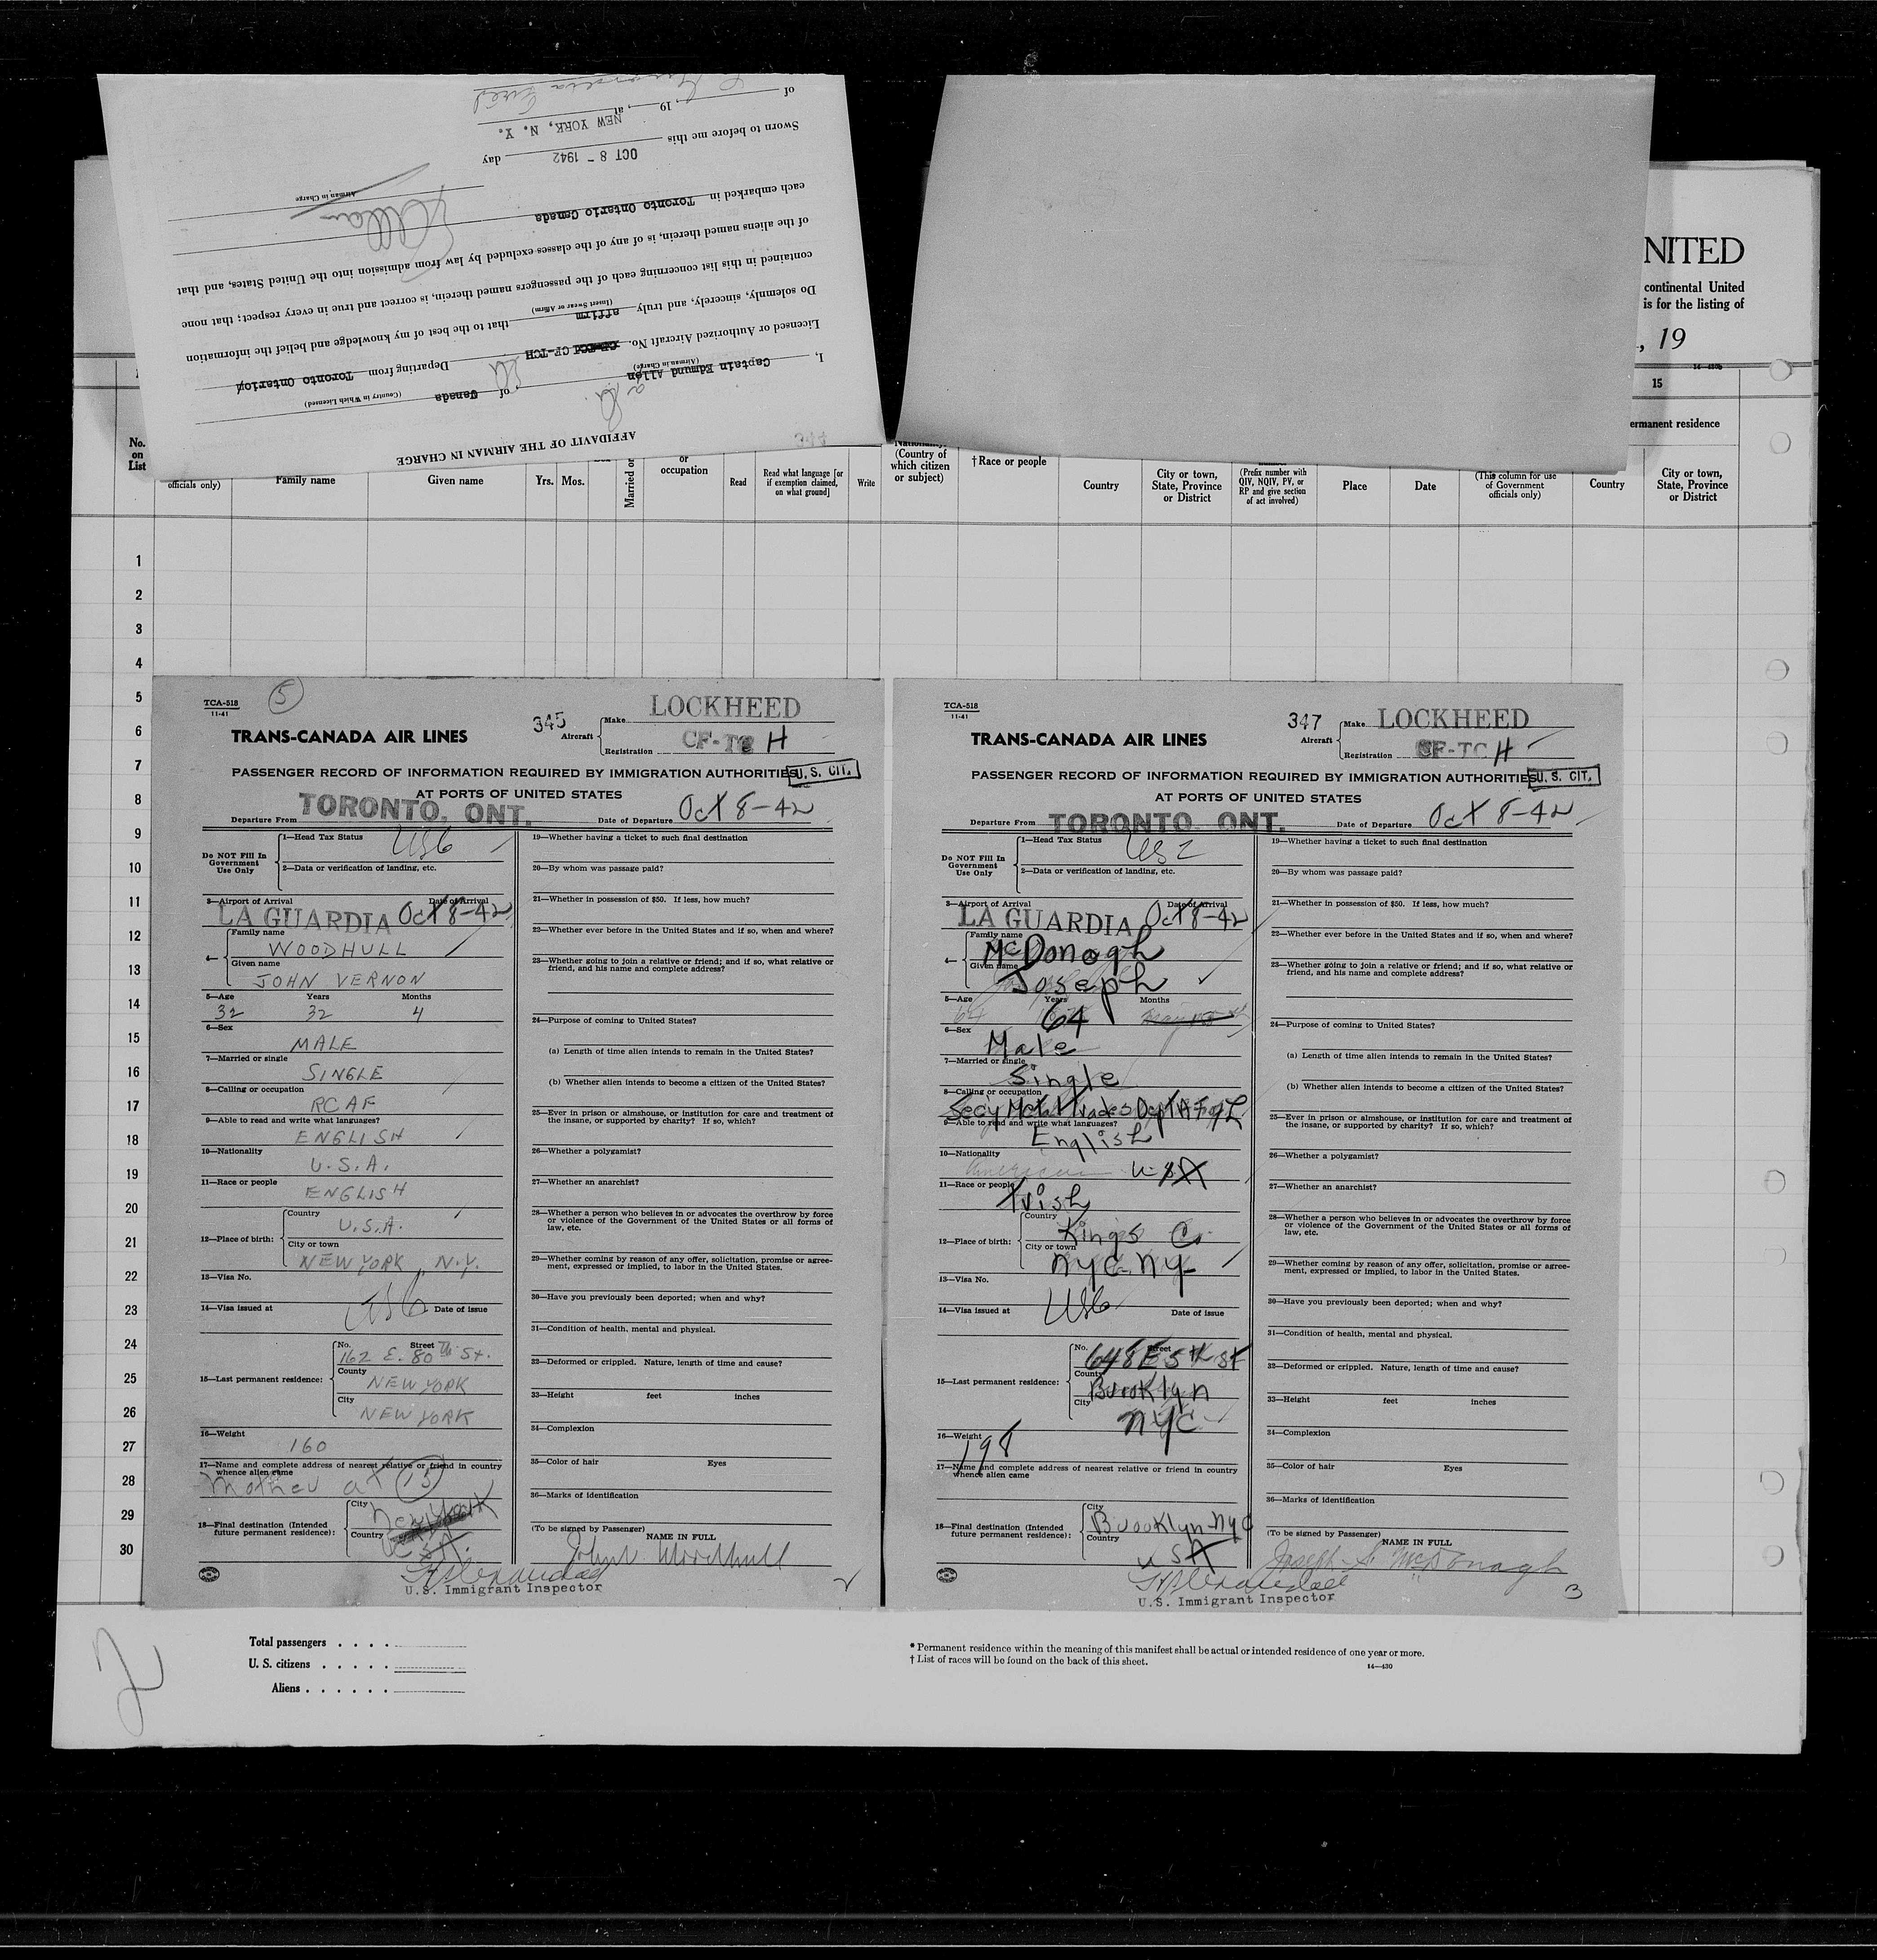 AFFIDAVIT OF THE AIRMAN IN CHARGE
I, Captain Edmund Allen of Canada
(Airman in Charge) (Country in Which Licensed)
Licensed or Authorized Aircraft No. CF-TCH Departing from Toronto Ontario
Do solemnly, sincerely, and truly affirm that to the best of my knowledge and belief the information
(Insert Swear or Affirm)
contained in this list concerning each of the passengers named therein, is correct and true in every respect; that none
of the aliens named therein, is of any of the classes excluded by law from admission into the United States, and that
each embarked in Toronto Ontario Canada
Airman in Charge
Sworn to before me this OCT 8 - 1942 day
of , 19 , at NEW YORK, N. Y.
NITED
continental United
is for the listing of
, 19
14-430b
15
ermanent residence
No.
on
List
officials only)
Family name
Given name
Yrs. Mos.
Married or
or
occupation
Read
Read what language [or
if exemption claimed,
on what ground]
Write
Nationality.
(Country of
which citizen
or subject)
†Race or people
Country
City or town,
State, Province
or District
(Prefix number with
QIV, NQIV, PV, or
RP and give section
of act involved)
Place
Date
(This column for use
of Government
officials only)
Country
City or town,
State, Province
or District
1
2
3
4
5
6
7
8
9
10
11
12
13
14
15
16
17
18
19
20
21
22
23
24
25
26
27
28
29
30
TCA-518
11-41
5
345
Aircraft
Make LOCKHEED
Registration CF-TC H
TRANS-CANADA AIR LINES
PASSENGER RECORD OF INFORMATION REQUIRED BY IMMIGRATION AUTHORITIES
U. S. CIT.
AT PORTS OF UNITED STATES
Departure From TORONTO, ONT. Date of Departure Oct 8-42
Do NOT Fill In
Government
Use Only
1—Head Tax Status USC
2—Data or verification of landing, etc.
3—Airport of Arrival Date of Arrival
LA GUARDIA Oct 8-42
4— Family name
WOODHULL
Given name
JOHN VERNON
5—Age Years Months
32 32 4
6—Sex
MALE
7—Married or single
SINGLE
8—Calling or occupation
RCAF
9—Able to read and write what languages?
ENGLISH
10—Nationality
U.S.A.
11—Race or people
ENGLISH
12—Place of birth: Country
U.S.A.
City or town
NEW YORK, N.Y.
13—Visa No.
14—Visa issued at USC Date of issue
15—Last permanent residence:
No. Street
162 E. 80th St.
County
NEW YORK
City
NEW YORK
16—Weight
160
17—Name and complete address of nearest relative or friend in country
whence alien came
Mother at 15
18—Final destination (Intended
future permanent residence):
City New York
Country
19—Whether having a ticket to such final destination
20—By whom was passage paid?
21—Whether in possession of $50. If less, how much?
22—Whether ever before in the United States and if so, when and where?
23—Whether going to join a relative or friend; and if so, what relative or
friend, and his name and complete address?
24—Purpose of coming to United States?
(a) Length of time alien intends to remain in the United States?
(b) Whether alien intends to become a citizen of the United States?
25—Ever in prison or almshouse, or institution for care and treatment of
the insane, or supported by charity? If so, which?
26—Whether a polygamist?
27—Whether an anarchist?
28—Whether a person who believes in or advocates the overthrow by force
or violence of the Government of the United States or all forms of
law, etc.
29—Whether coming by reason of any offer, solicitation, promise or agree-
ment, expressed or implied, to labor in the United States.
30—Have you previously been deported; when and why?
31—Condition of health, mental and physical.
32—Deformed or crippled. Nature, length of time and cause?
33—Height feet inches
34—Complexion
35—Color of hair Eyes
36—Marks of identification
(To be signed by Passenger)
NAME IN FULL
John Woodhull
U.S. Immigrant Inspector
2
TCA-518
11-41
347
Aircraft
Make LOCKHEED
Registration CF-TC H
TRANS-CANADA AIR LINES
PASSENGER RECORD OF INFORMATION REQUIRED BY IMMIGRATION AUTHORITIES
U. S. CIT.
AT PORTS OF UNITED STATES
Departure From TORONTO, ONT. Date of Departure Oct 8-42
Do NOT Fill In
Government
Use Only
1—Head Tax Status USC
2—Data or verification of landing, etc.
3—Airport of Arrival Date of Arrival
LA GUARDIA Oct 8-42
4— Family name
McDonagh
Given name
Joseph
5—Age Years Months
64 64
6—Sex
Male
7—Married or single
Single
8—Calling or occupation
Secy Metal Trades Dept A F of L
9—Able to read and write what languages?
English
10—Nationality
American USA
11—Race or people
Irish
12—Place of birth: Country
Kings Co
City or town
NYC NY
13—Visa No.
14—Visa issued at USC Date of issue
15—Last permanent residence:
No. Street
648 E 5th St
County
Brooklyn
City
NYC
16—Weight
198
17—Name and complete address of nearest relative or friend in country
whence alien came
18—Final destination (Intended
future permanent residence):
City
Brooklyn NYC
Country
USA
19—Whether having a ticket to such final destination
20—By whom was passage paid?
21—Whether in possession of $50. If less, how much?
22—Whether ever before in the United States and if so, when and where?
23—Whether going to join a relative or friend; and if so, what relative or
friend, and his name and complete address?
24—Purpose of coming to United States?
(a) Length of time alien intends to remain in the United States?
(b) Whether alien intends to become a citizen of the United States?
25—Ever in prison or almshouse, or institution for care and treatment of
the insane, or supported by charity? If so, which?
26—Whether a polygamist?
27—Whether an anarchist?
28—Whether a person who believes in or advocates the overthrow by force
or violence of the Government of the United States or all forms of
law, etc.
29—Whether coming by reason of any offer, solicitation, promise or agree-
ment, expressed or implied, to labor in the United States.
30—Have you previously been deported; when and why?
31—Condition of health, mental and physical.
32—Deformed or crippled. Nature, length of time and cause?
33—Height feet inches
34—Complexion
35—Color of hair Eyes
36—Marks of identification
(To be signed by Passenger)
NAME IN FULL
Joseph S. McDonagh
U.S. Immigrant Inspector
3
2
Total passengers . . . .
U. S. citizens . . . . .
Aliens . . . . . .
* Permanent residence within the meaning of this manifest shall be actual or intended residence of one year or more.
† List of races will be found on the back of this sheet.
14—430